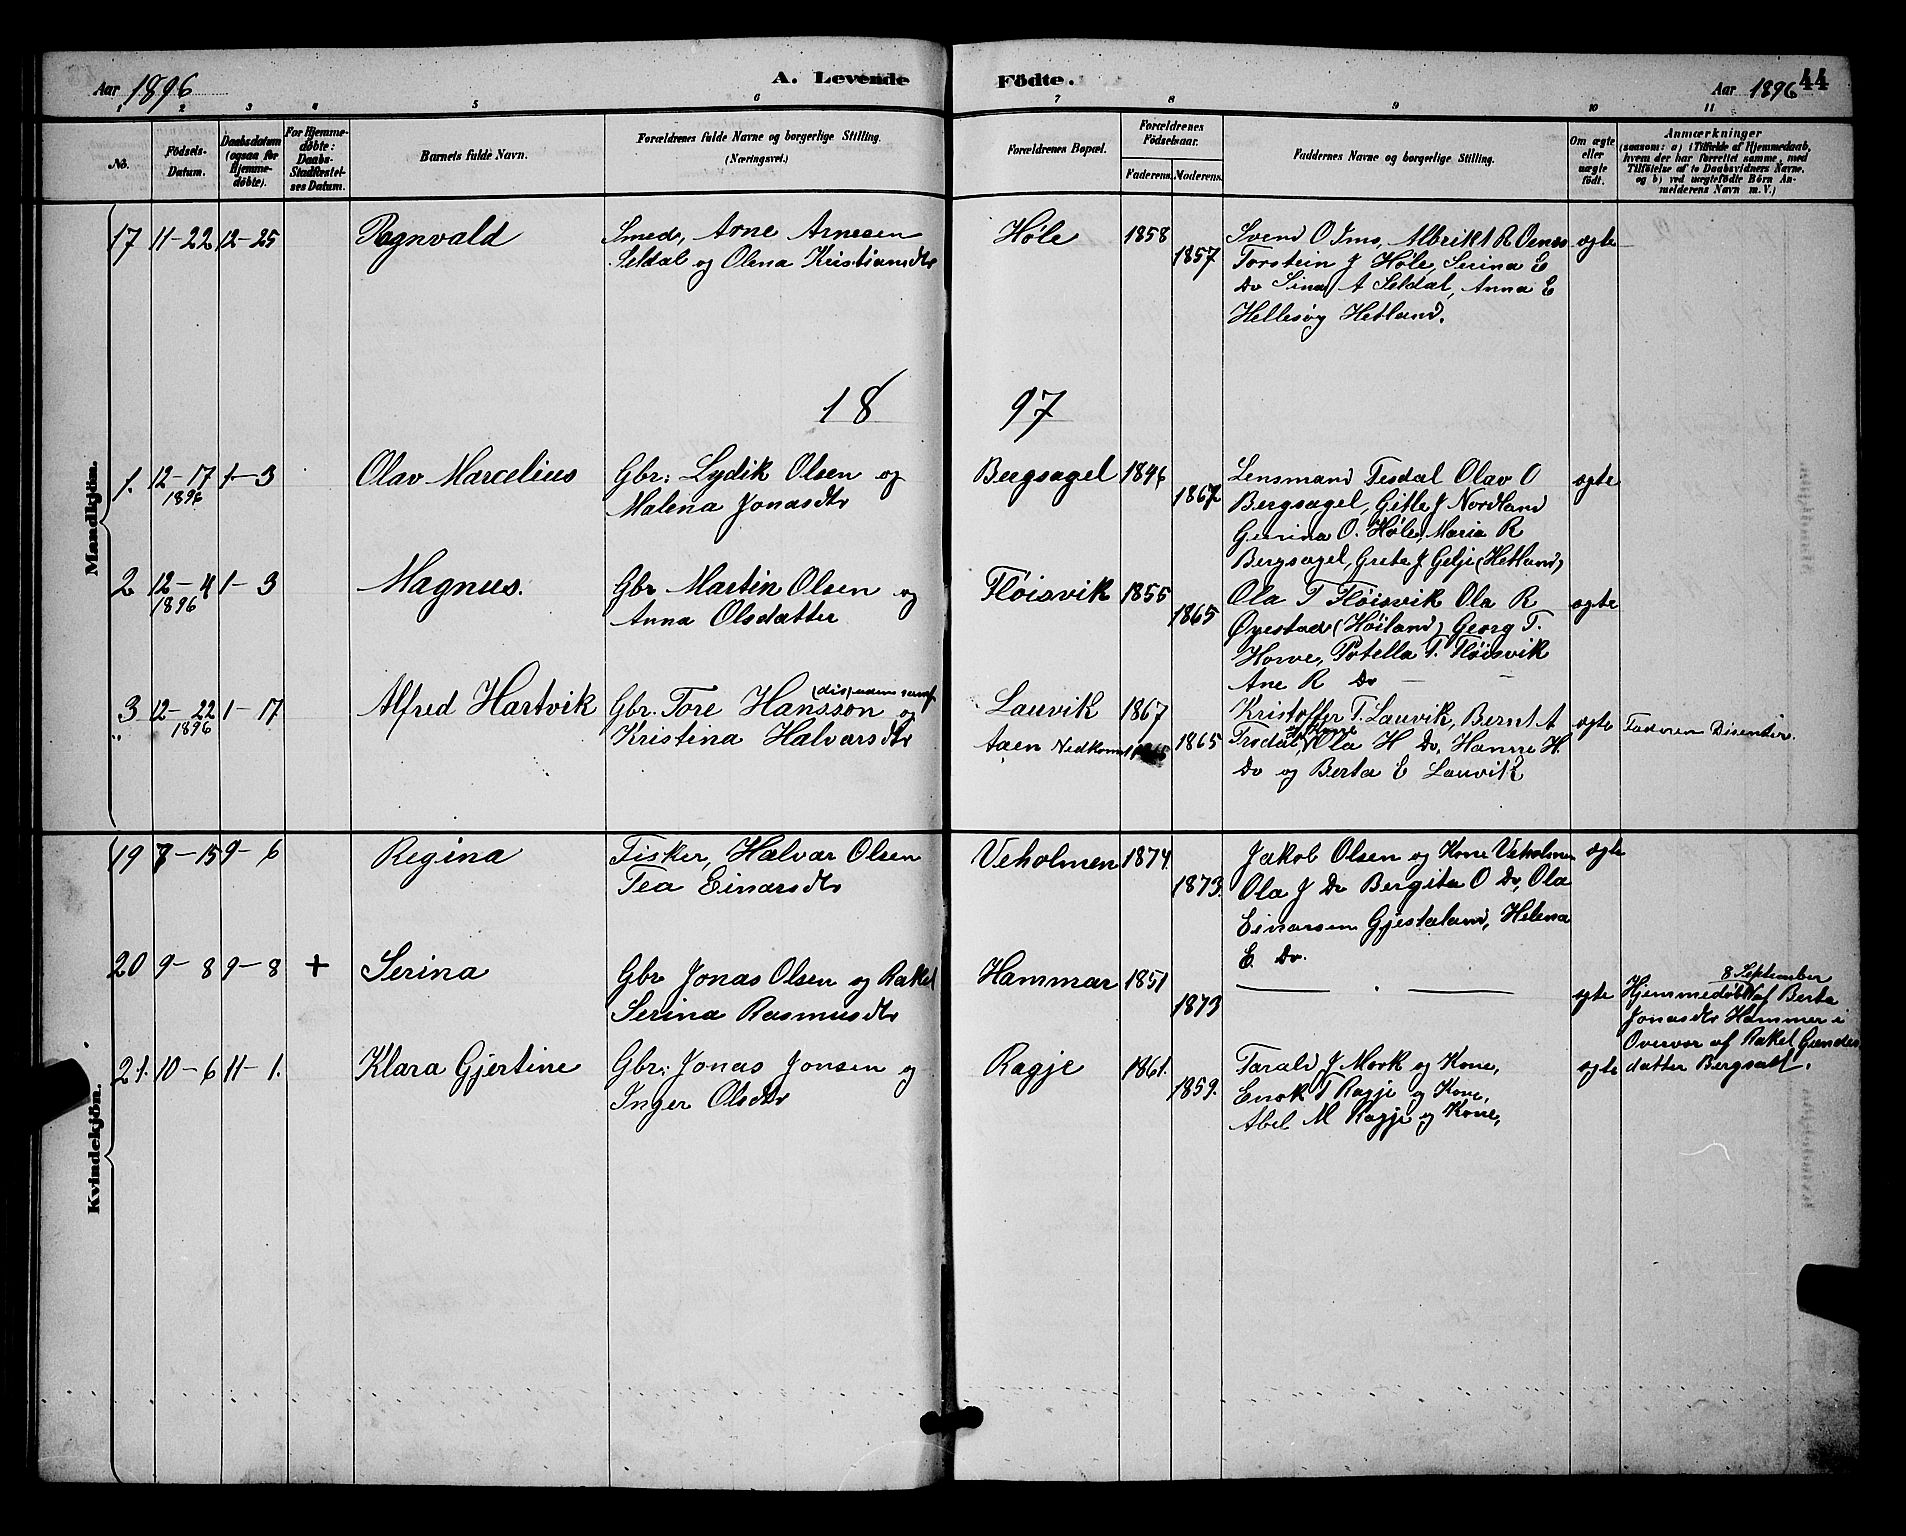 Aar 1896
A. Levende
Fødte.
Aar 1896 44
1 2 3 4 5 6 7 8 9 10 11
No.
Fødsels-Datum.
Daabsdatum (ogsaa for Hjemmedøbte).
For Hjemmedøbte: Daabs-Stadfæstelses Datum.
Barnets fulde Navn.
Forældrenes fulde Navne og borgerlige Stilling. (Næringsvei.)
Forældrenes Bopæl.
Forældrenes Fødselsaar.
Faderens. Moderens.
Faddernes Navne og borgerlige Stilling.
Om ægte eller uægte født.
Anmærkninger
(saasom: a) i Tilfælde af Hjemmedaab, hvem der har forrettet samme, med Tilføielse af to Daabsvidners Navne, og b) ved uægtefødte Børn Anmelderens Navn m. V.)
Mandkjøn.
17 11-22 12-25 Ragnvald
Smed, Arne Arnesen
Seldal og Olena Kristiansdtr
Høle 1858
1857
Svend O Ims, Albrikt R Oenes
Torstein J Høle, Serina E
Do Sina A Seldal, Anna E
Hellesøy Hetland.
ægte
18 97
1. 12-17 1896 1-3 Olav Marcelius
Gbr: Lydik Olsen og
Malena Jonasdtr
Bergsagel 1846
1867
Lensmand Tesdal Olav O
Bergsagel, Gitle J Nordland
Gurina O. Høle, Maria R
Bergsagel, Grete J Gilje (Hetland)
ægte
2 12-4 1896 1-3 Magnus.
Gbr Martin Olsen og
Anna Olsdatter
Fløisvik 1855
1865
Ola T Fløisvik Ola R
Øvestad (Høiland) Georg T.
Howe, T. Fløisvik
Ane R Do
ægte
3 12-22 1896 1-17 Alfred Hartvik
(dis) udenn samf
Gbr. Tore Hansson og
Kristina Halvarsdtr
Lauvik 1867
1865
Kristoffer T. Lauvik, Bernt A
Trodal, og Kone Ola H Do, Hanne H.
Do og Berta E Lauvik
ægte
Faderen Disenter.
Kvindekjøn.
19 7-15 9-6 Regina
Fisker, Halvar Olsen
Tea Einarsdtr
Veholmen 1874
1873.
Jakob Olsen og Kone Veholmen
Ola J Do Bergita O Do, Ola
Einarsen Gjestaland, Helena
E. Do.
ægte
20 9-8 9-8 + Serina
Gbr Jonas Olsen og Rakel
Serina Rasmusdtr
Hammar 1851
1873
ægte
8 September
Hjemmedøbt af Berta
Jonasdtr Hammer i
Overvær af Rakel
datter
21. 10-6 11-1. Klara Gjertine
Gbr: Jonas Jonsen og
Inger Olsdtr
Ragje 1861.
1859.
Tarald J Mork og Kone,
Enok T Ragje og Kone,
Abel M Ragje og Kone,
ægte